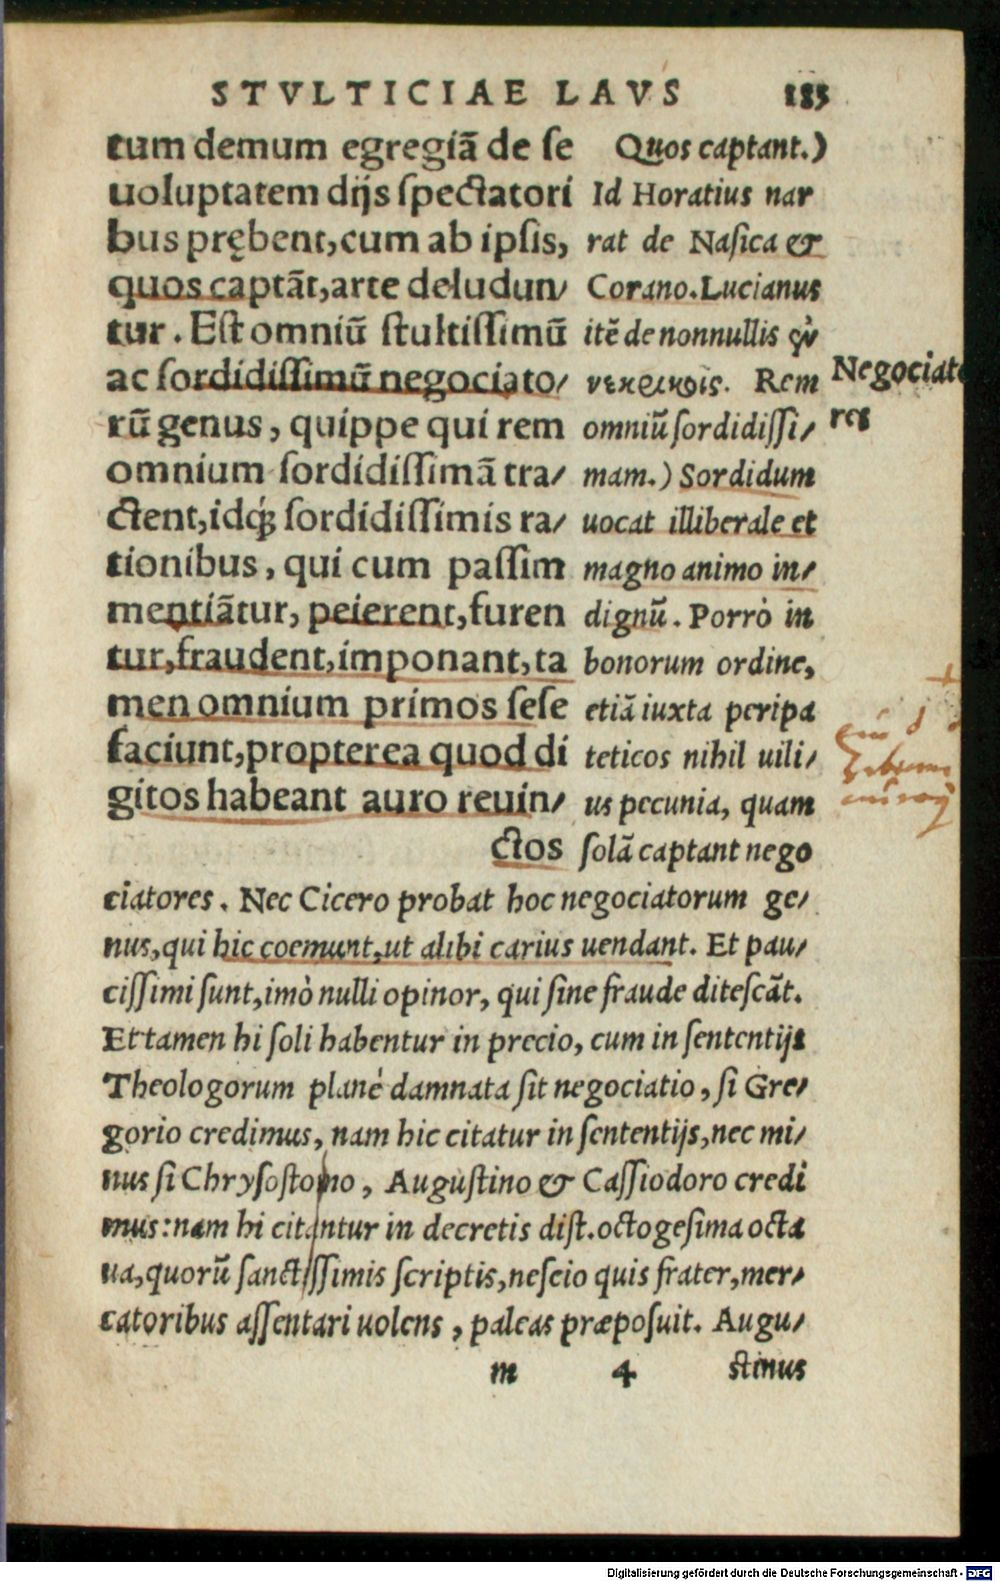 STVLTICIAE LAVS 183
tum demum egregiā de se
uoluptatem dijs spectatori
bus prębent, cum ab ipsis,
quos captāt, arte deludun/
tur. Est omniū stultissimū
ac sordidissimū negociato/
rū genus, quippe qui rem
omnium sordidissimā tra/
ctent, idq́; sordidissimis ra/
tionibus, qui cum passim
mentiātur, peierent, furen
tur, fraudent, imponant, ta
men omnium primos sese
faciunt, propterea quod di
gitos habeant auro reuin/
ctos
Quos captant.)
Id Horatius nar
rat de Nasica &
Corano. Lucianus
itē de nonnullis ἐν
νεκρικοῖς. Rem
omniū sordidissi/
mam.) Sordidum
uocat illiberale et
magno animo in/
dignū. Porrò in
bonorum ordine,
etiā iuxta peripa
teticos nihil uili/
us pecunia, quam
solā captant nego
ciatores. Nec Cicero probat hoc negociatorum ge/
nus, qui hic coemunt, ut alibi carius uendant. Et pau/
cissimi sunt, imò nulli opinor, qui sine fraude ditescāt.
Et tamen hi soli habentur in precio, cum in sententijs
Theologorum planè damnata sit negociatio, si Gre/
gorio credimus, nam hic citatur in sententijs, nec mi/
nus si Chrysostomo, Augustino & Cassiodoro credi
mus: nam hi citantur in decretis dist. octogesima octa
ua, quorū sanctissimis scriptis, nescio quis frater, mer/
catoribus assentari uolens, paleas præposuit. Augu/
m 4 stinus
Negociato
res
Digitalisierung gefördert durch die Deutsche Forschungsgemeinschaft - DFG